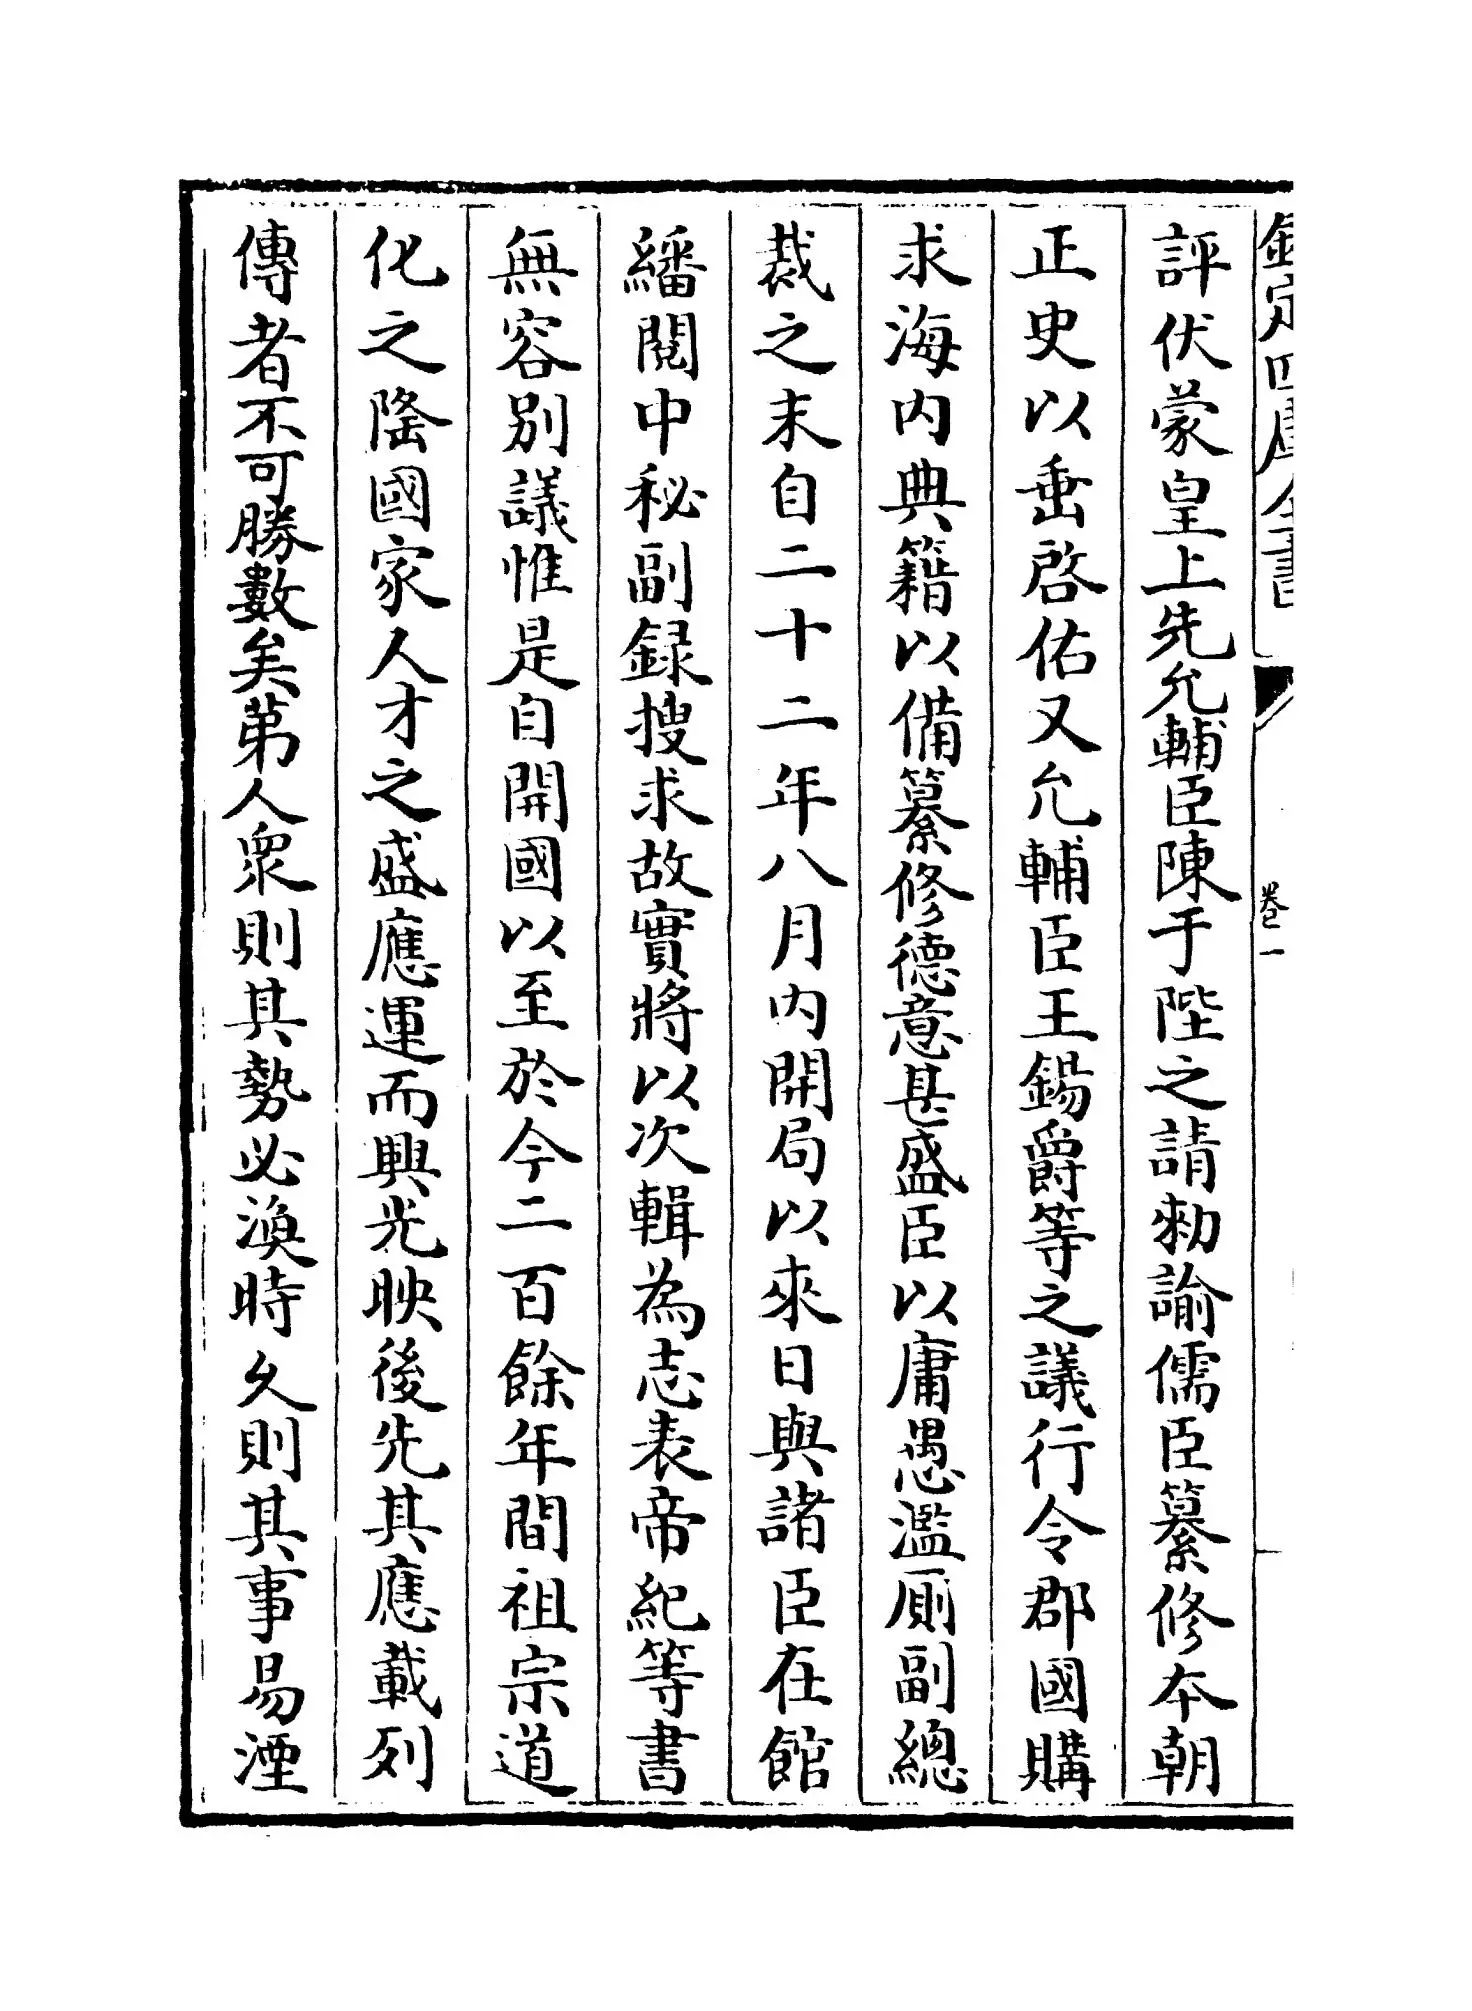 欽定四庫全書
卷一
評伏蒙皇上先允輔臣陳于陛之請勑諭儒臣纂修本朝
正史以垂啓佑又允輔臣王錫爵等之議行令郡國購
求海内典籍以備纂修德意甚盛臣以庸愚濫厠副總
裁之末自二十二年八月内開局以來日與諸臣在館
繙閱中秘副録搜求故實將以次輯為志表帝紀等書
無容别議惟是自開國以至於今二百餘年間祖宗道
化之隆國家人才之盛應運而興光映後先其應載列
傳者不可勝數矣第人衆則其勢必渙時久則其事易湮